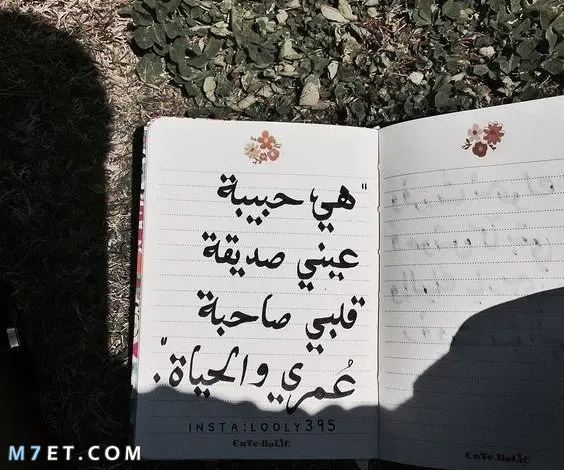 "هي حبيبة
عيني صديقة
قلبي صاحبة
عُمري والحياة".
INSTA:LOOLY395
CuTe HoLiC
CuTe HoLiC
M7ET.COM